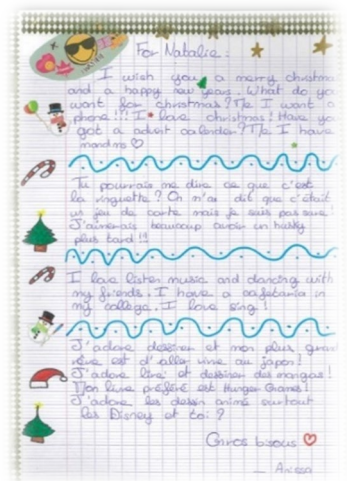 For Natalie :
I wish you a merry christmas
and a happy new years. What do you
want for christmas? Me I want a
phone!!! I love christmas! Have you
got a advent calender? Me I have
♡
Tu pourrais me dire ce que c'est
la ringuette? On m'a dit que c'était
un jeu de carte mais je suis pas sure!
J'aimerais beaucoup avoir un husky
plus tard!!!
I love listen music and dancing with
my friends. I have a cafetaria in
my collège. I love sing!
J'adore dessiner et mon plus grand
rêve est d'aller vivre au japon!
J'adore lire et dessiner des mangas!
Mon livre préféré est Hunger Games!
J'adore les dessin animé surtout
les Disney et toi?
Gros bisous ♡